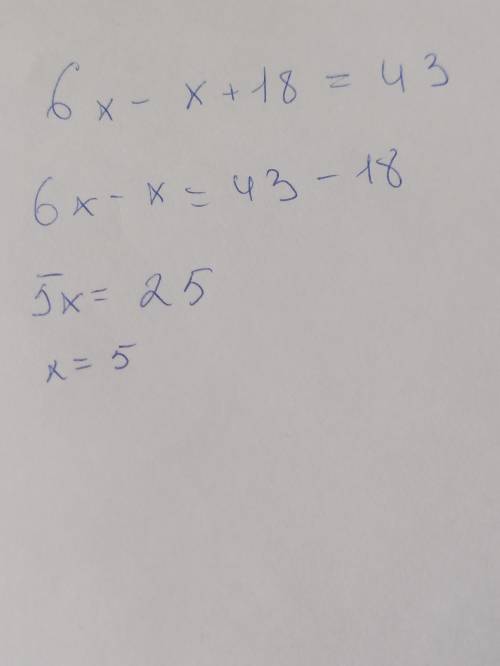 6x - x + 18 = 43
6x - x = 43 - 18
5x = 25
x = 5